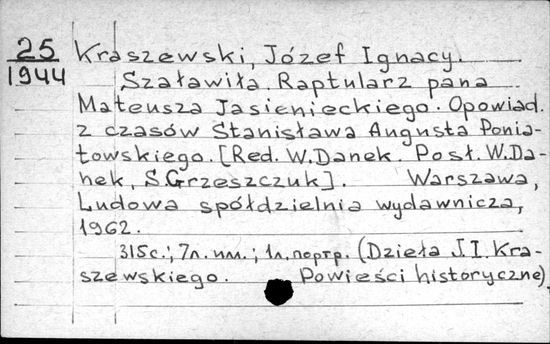 25
1944
Kraszewski, Józef Ignacy.
Szaławiła. Raptularz pana
Mateusza Jasienieckiego. Opowiad.
z czasów Stanisława Augusta Ponia-
towskiego. [Red. W. Danek. Posł. W. Da-
nek, S. Grzeszczuk]. Warszawa,
Ludowa spółdzielnia wydawnicza,
1962.
315 с.; 7 л. илл.; 1 л. портр. (Dzieła J. I. Kra-
szewskiego. Powieści historyczne).